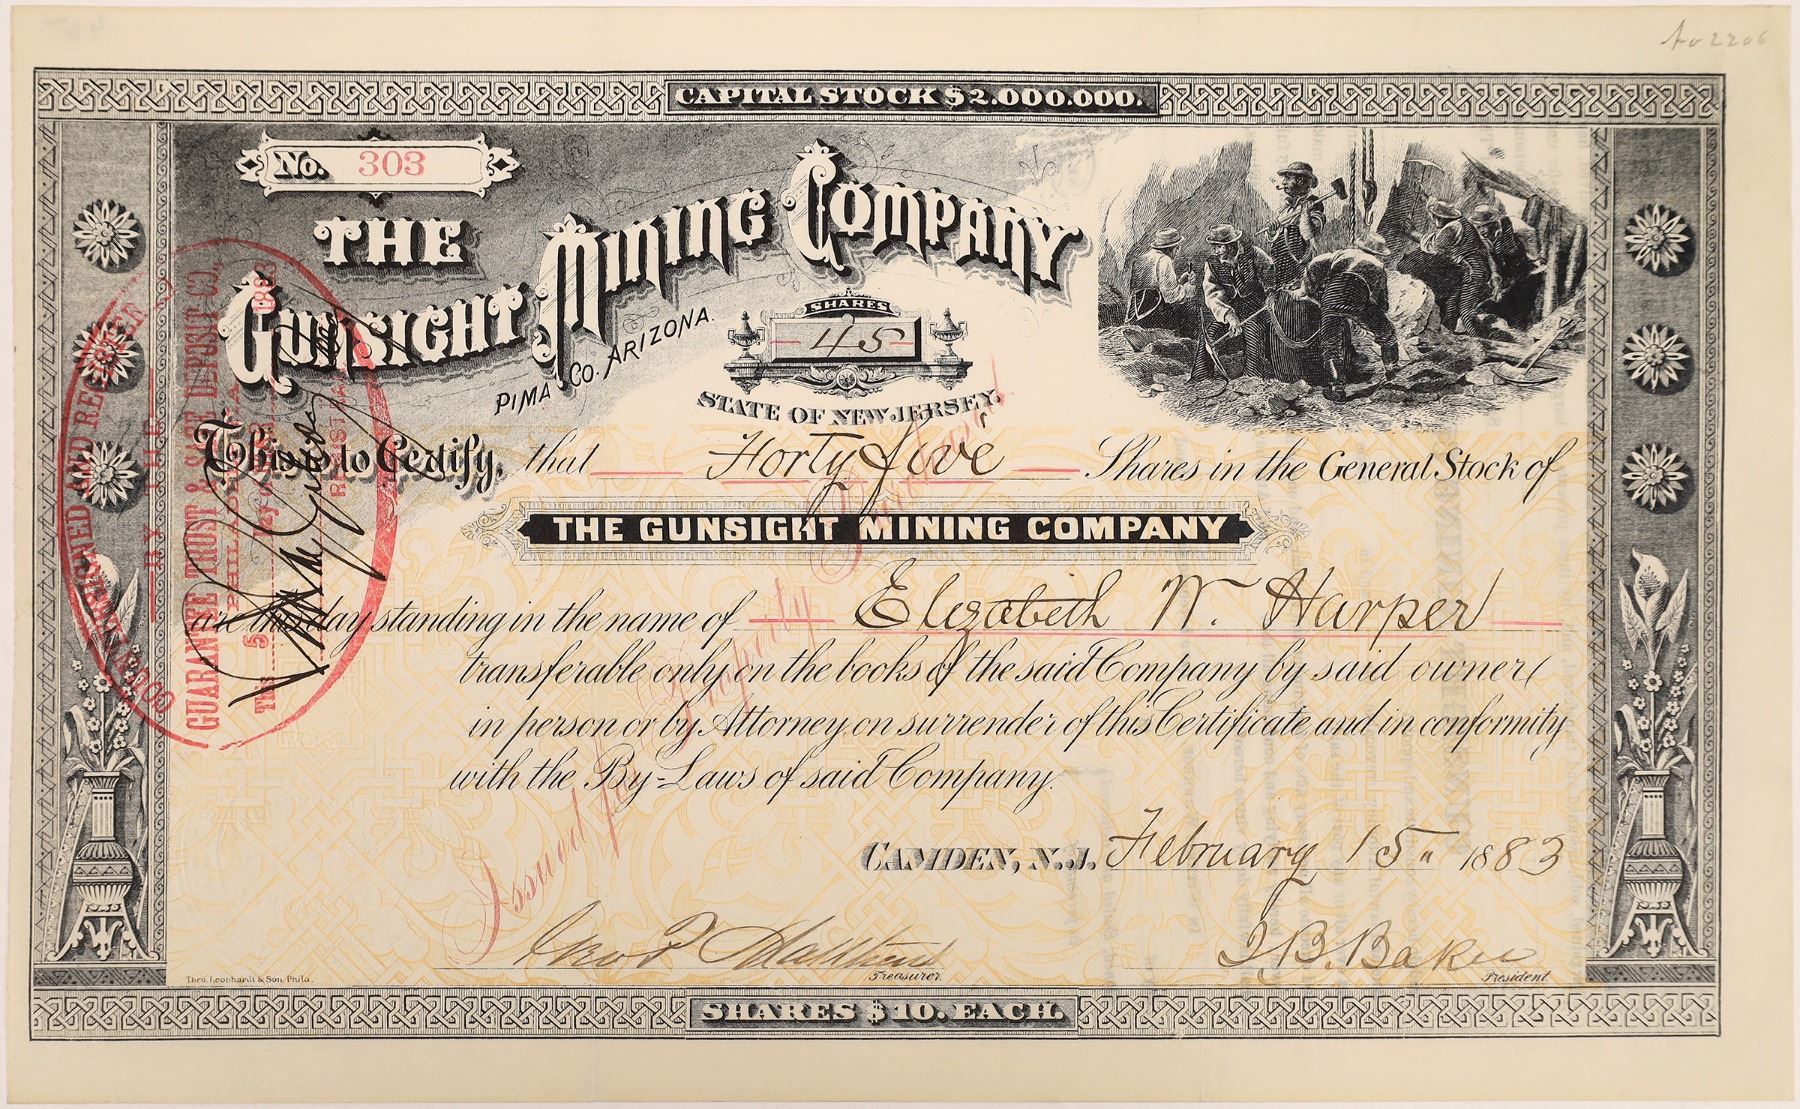 CAPITAL STOCK $2.000.000.
No. 303
THE
GUNSIGHT MINING COMPANY
PIMA CO. ARIZONA.
SHARES
45
STATE OF NEW JERSEY.
This is to Certify, that Forty five Shares in the General Stock of
THE GUNSIGHT MINING COMPANY
are this day standing in the name of Elizabeth W. Harper
transferable only on the books of the said Company by said owner
in person or by Attorney on surrender of this Certificate and in conformity
with the By-Laws of said Company.
CAMDEN, N.J. February 15" 1883
Treasurer.
J. B. Baker
President
Theo. Leonhardt & Son, Phila.
SHARES $10. EACH.
Issued for Property Purchased
COUNTERSIGNED AND REGISTERED
BY THE
GUARANTEE TRUST & SAFE DEPOSIT CO.,
PHILADELPHIA
This 5 day of 1883
REGISTRAR